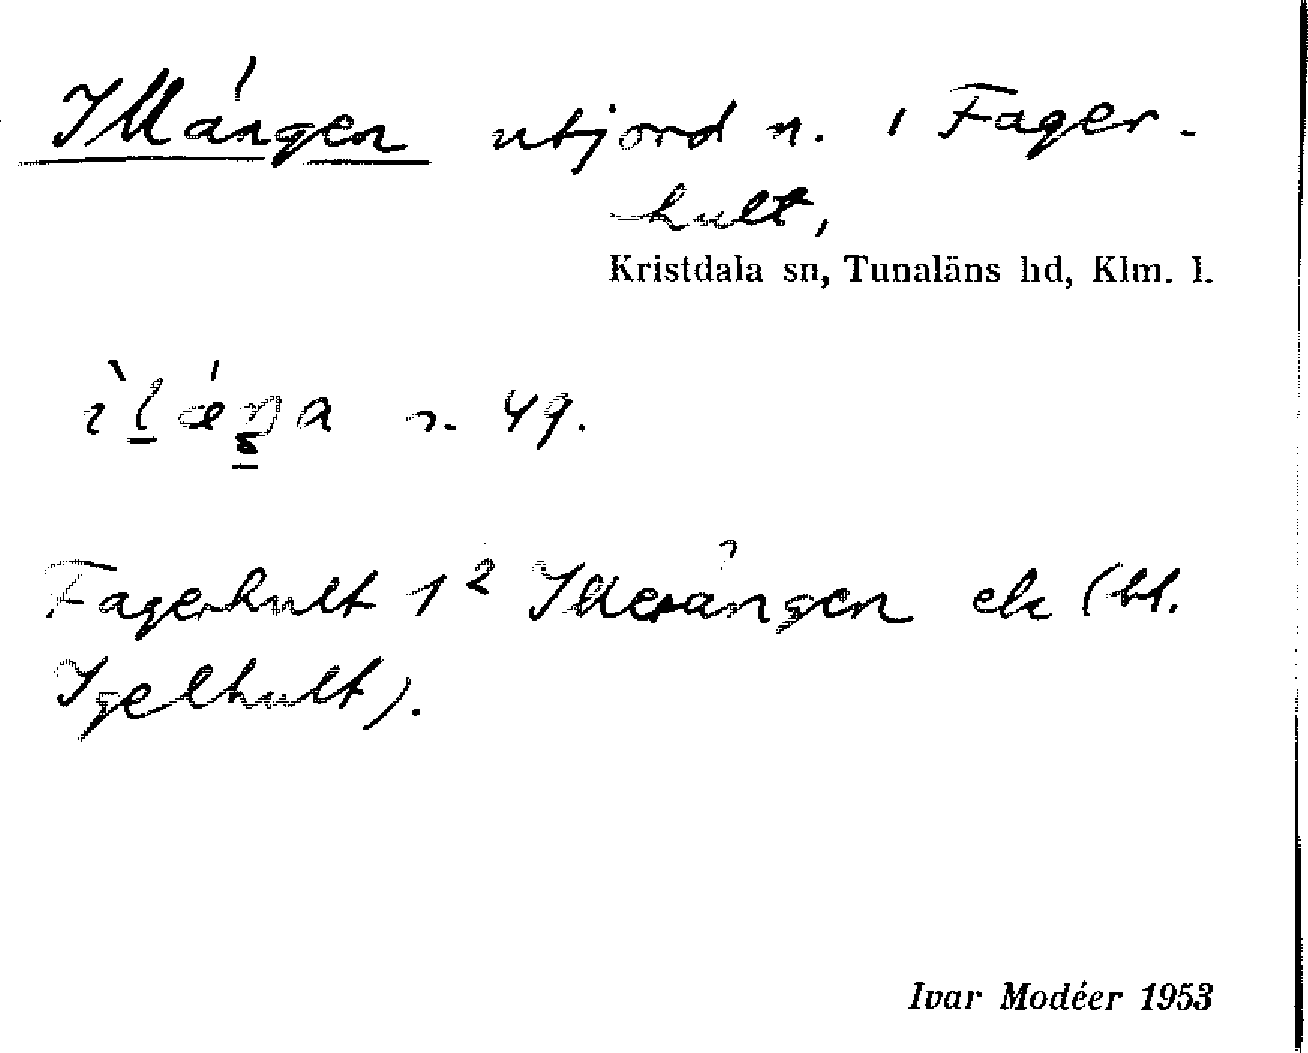 Illängen utjord n. i Fager-
hult,
Kristdala sn, Tunaläns hd, Klm. l.
n. 49.
Fagerhult 1² Illerängen ek (bl.
Igelhult).
Ivar Modéer 1953